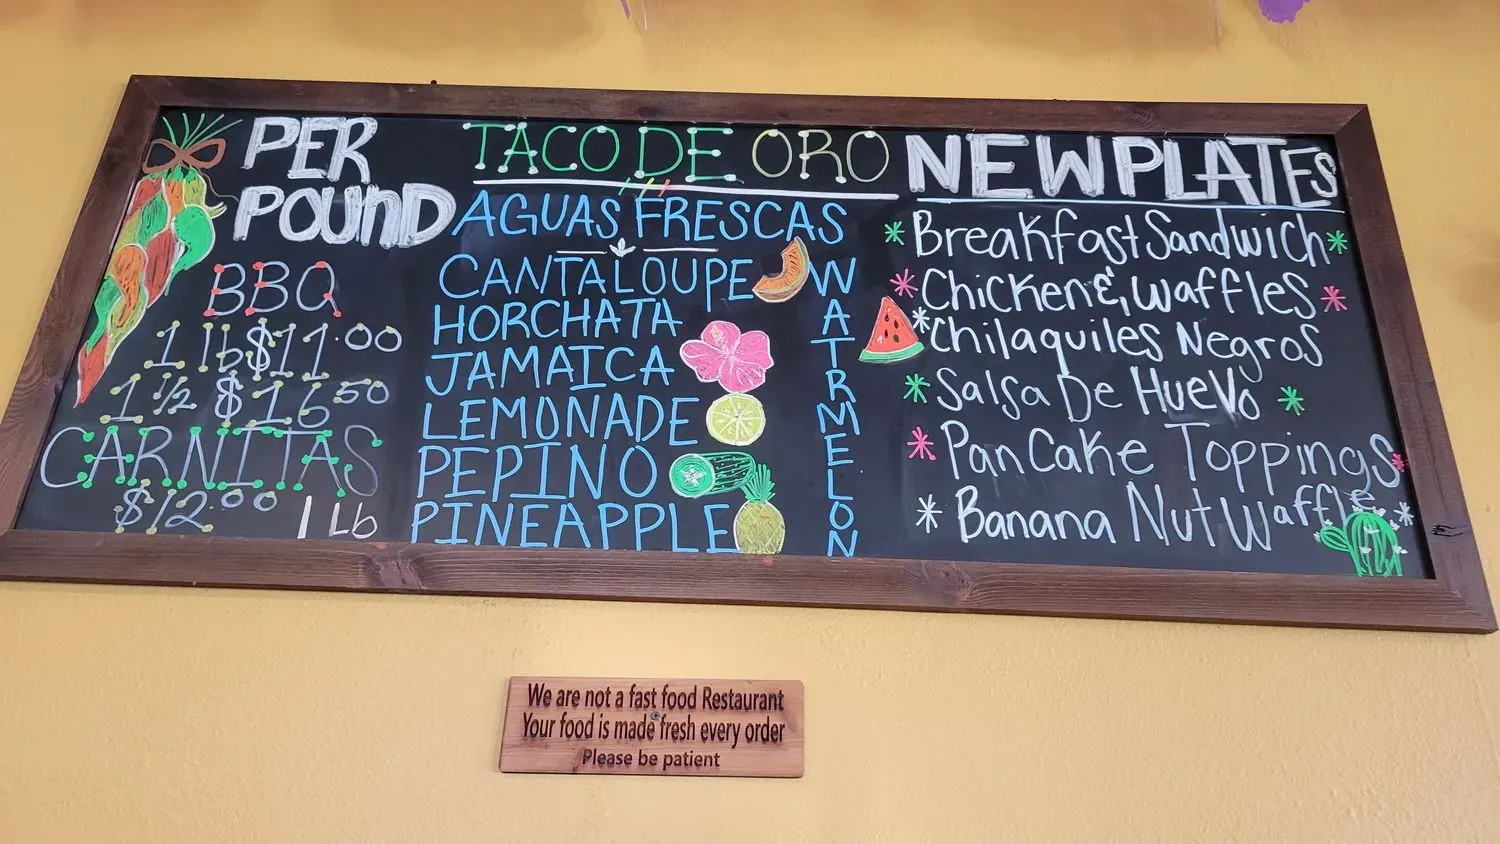 PER
POUND
BBQ
1 lb $11.00
1 1/2 $16.50
CARNITAS
$12.00 1 Lb
TACO DE ORO
AGUAS FRESCAS
CANTALOUPE
HORCHATA
JAMAICA
LEMONADE
PEPINO
PINEAPPLE
WATRMELON
NEW PLATES
Breakfast Sandwich
Chicken & Waffles
Chilaquiles Negros
Salsa De Huevo
PanCake Toppings
Banana Nut Waffle
We are not a fast food Restaurant
Your food is made fresh every order
Please be patient